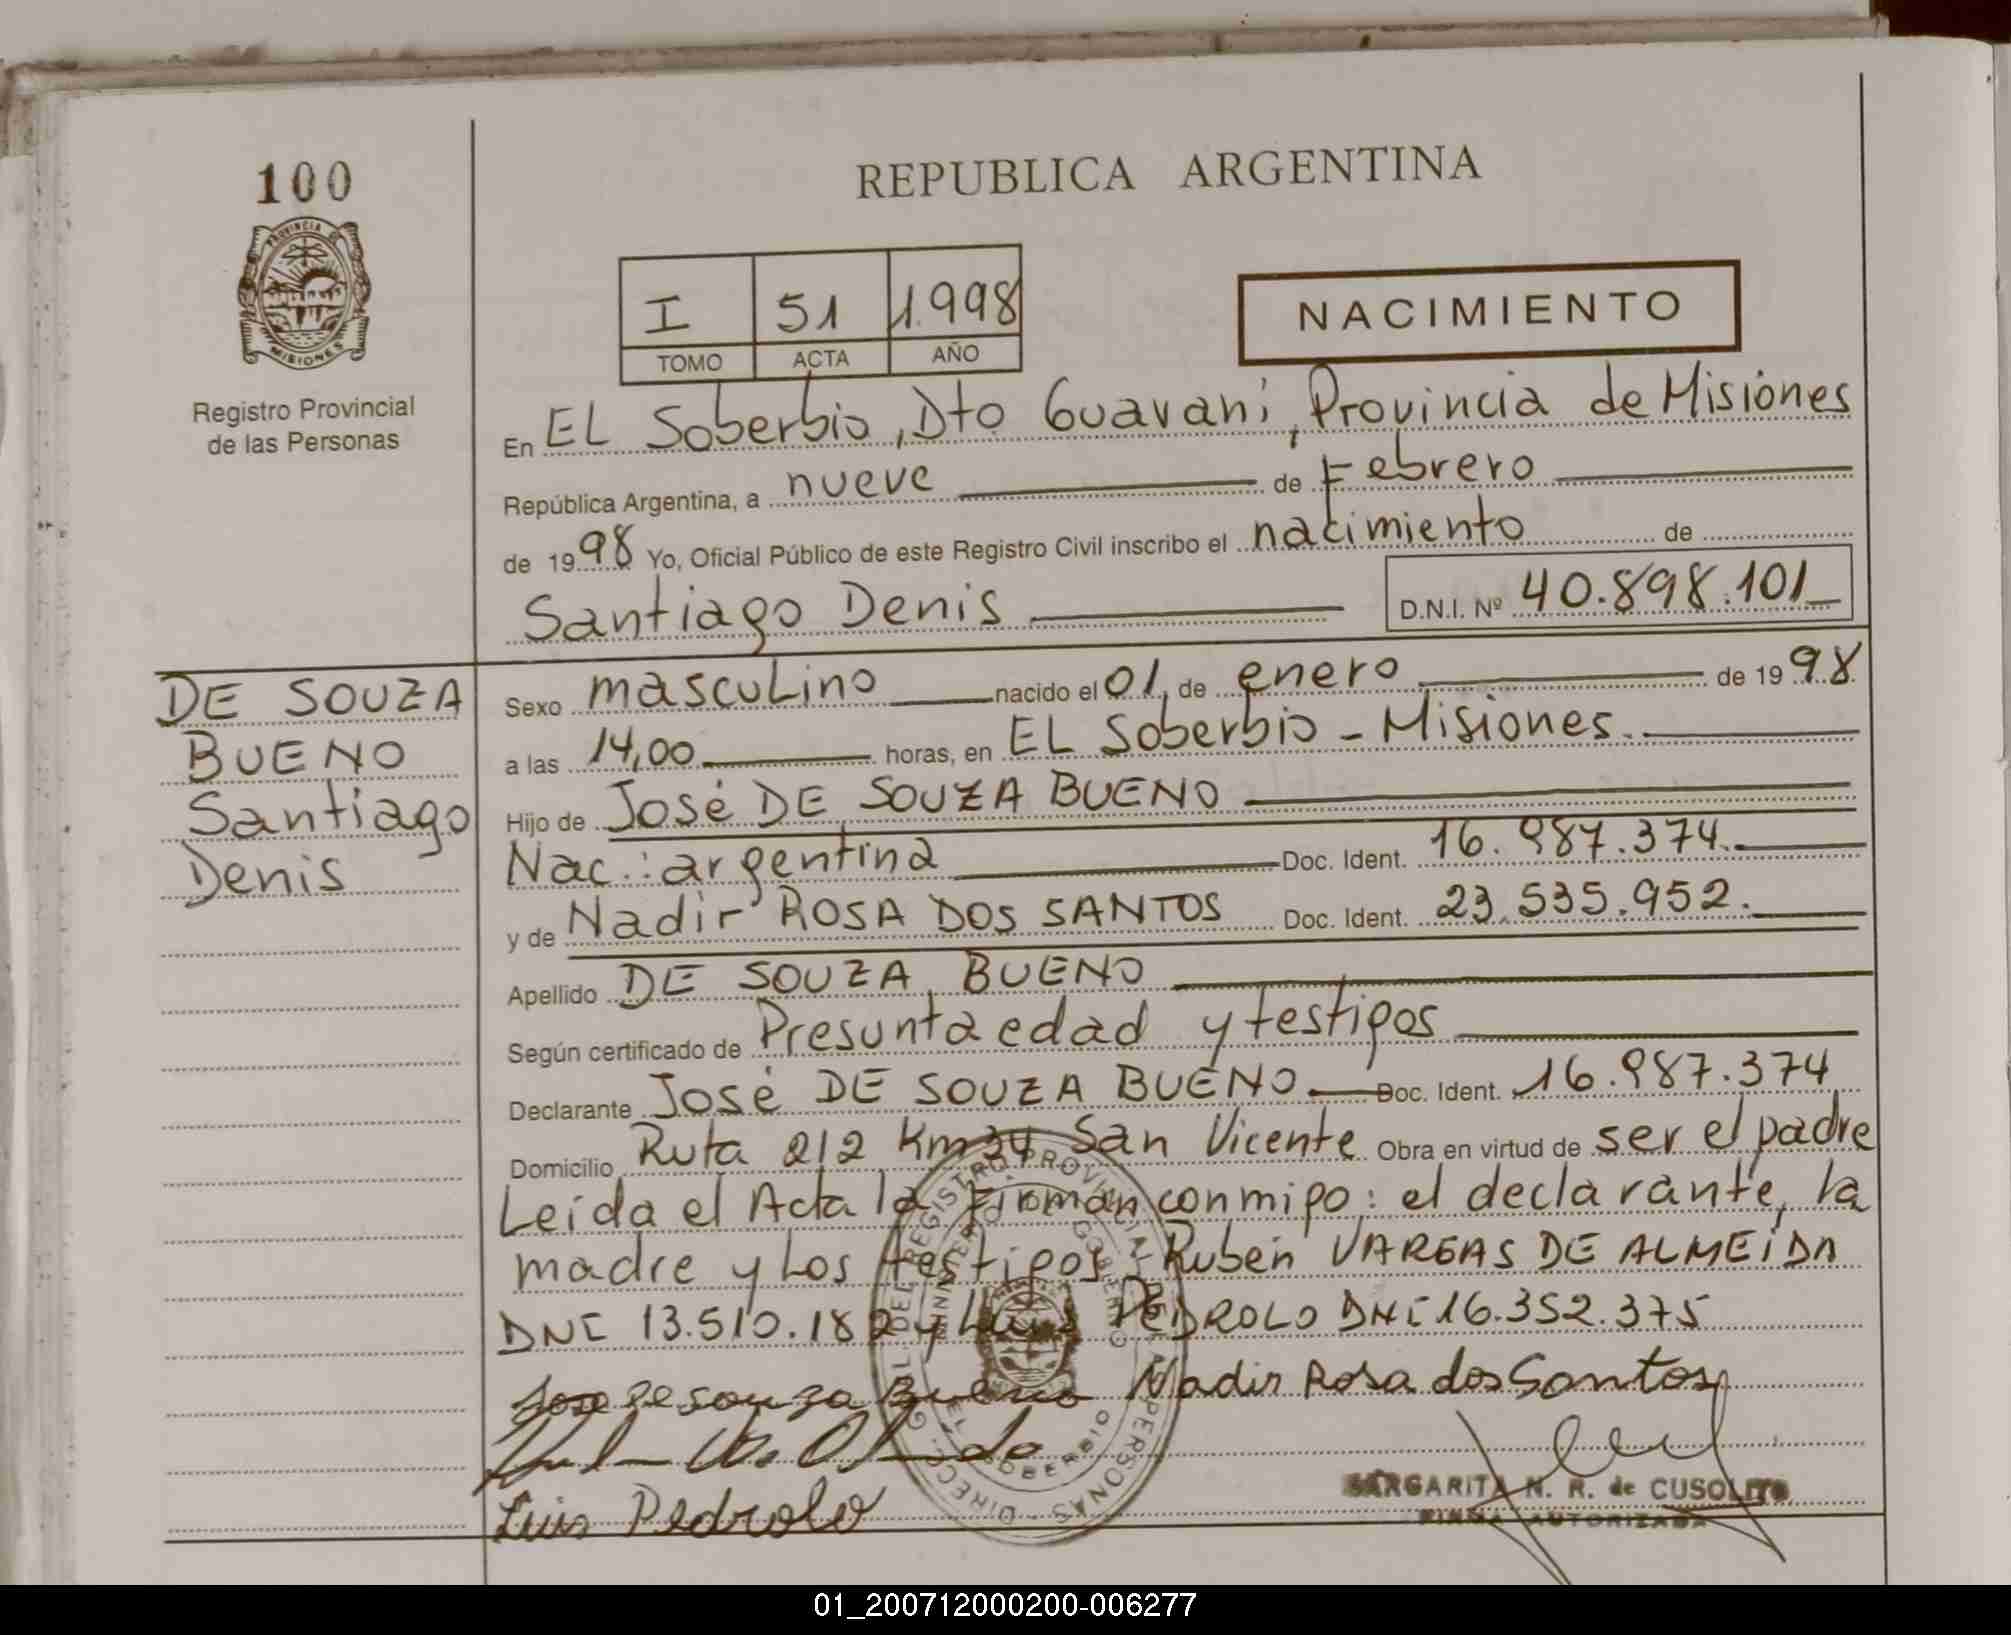 100
REPUBLICA ARGENTINA
PROVINCIA DE
MISIONES
Registro Provincial
de las Personas
I 51 1.998
TOMO ACTA AÑO
NACIMIENTO
En EL Soberbio, Dto Guaraní, Provincia de Misiones
República Argentina, a nueve de Febrero
de 1998 Yo, Oficial Público de este Registro Civil inscribo el nacimiento de
Santiago Denis D.N.I. Nº 40.898.101
DE SOUZA
BUENO
Santiago
Denis
Sexo masculino nacido el 01 de enero de 1998
a las 14,00 horas, en EL Soberbio - Misiones.
Hijo de José DE SOUZA BUENO
Nac.: argentina Doc. Ident. 16.987.374.
y de Nadir ROSA DOS SANTOS Doc. Ident. 23.535.952.
Apellido DE SOUZA BUENO
Según certificado de Presunta edad y testigos
Declarante José DE SOUZA BUENO Doc. Ident. 16.987.374
Domicilio Ruta 212 Km 34 San Vicente Obra en virtud de ser el padre
Leída el Acta la Firman conmigo: el declarante, la
madre y Los testigos Rubén VARGAS DE ALMEIDA
DNI 13.510.182 y Luis PEDROLO DNI 16.352.375
Jose De souza Bueno Nadir Rosa dos Santos
Luis Pedrolo
MARGARITA N. R. de CUSOLITO
FIRMA AUTORIZADA
01_200712000200-006277